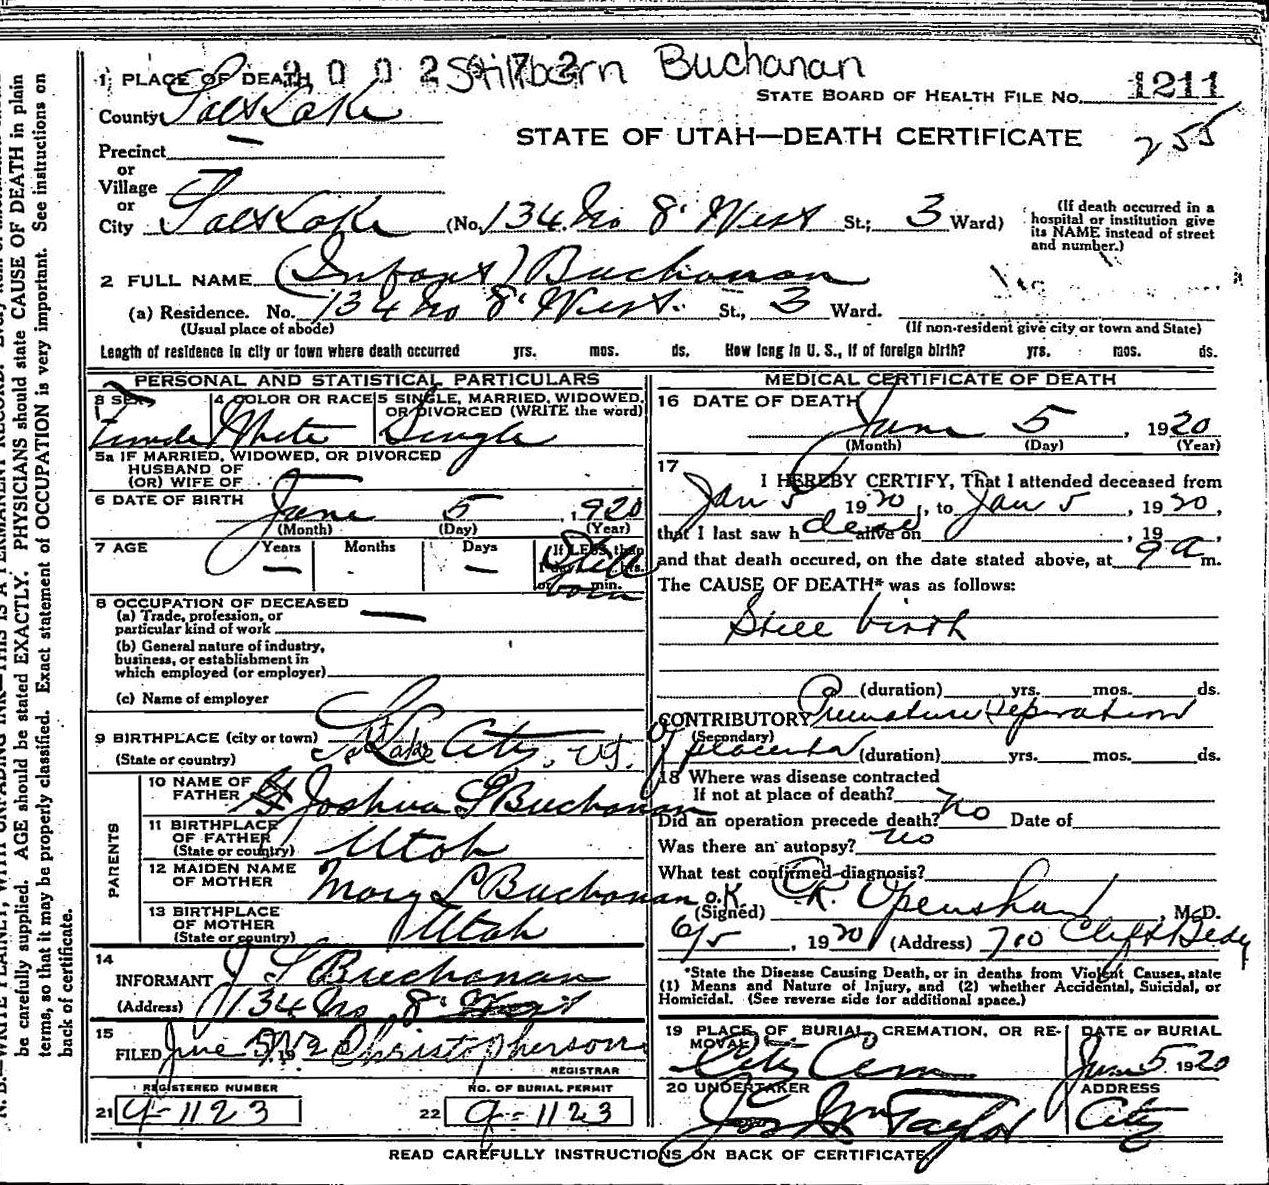 2002672 Stillborn Buchanan
1 PLACE OF DEATH
STATE BOARD OF HEALTH FILE NO. 1211
County Salt Lake
STATE OF UTAH—DEATH CERTIFICATE
255
Precinct
or
Village
or
City Salt Lake (No. 134 No 8' West St.; 3 Ward)
(If death occurred in a hospital or institution give its NAME instead of street and number.)
2 FULL NAME (Infant) Buchanan
(a) Residence. No. 134 No 8' West. St., 3 Ward.
(Usual place of abode) (If non-resident give city or town and State)
Length of residence in city or town where death occurred yrs. mos. ds. How long in U. S., if of foreign birth? yrs. mos. ds.
PERSONAL AND STATISTICAL PARTICULARS
3 SEX Female
4 COLOR OR RACE White
5 SINGLE, MARRIED, WIDOWED, OR DIVORCED (WRITE the word) Single
5a IF MARRIED, WIDOWED, OR DIVORCED
HUSBAND OF
(OR) WIFE OF —
6 DATE OF BIRTH June 5, 1920
(Month) (Day) (Year)
7 AGE Years — Months Days — If LESS than 1 day hrs. or min. Still born
8 OCCUPATION OF DECEASED
(a) Trade, profession, or
particular kind of work —
(b) General nature of industry,
business, or establishment in
which employed (or employer)
(c) Name of employer
9 BIRTHPLACE (city or town)
(State or country) S Lake City, Ut.
PARENTS
10 NAME OF FATHER Joshua S Buchanan
11 BIRTHPLACE OF FATHER
(State or country) Utah
12 MAIDEN NAME OF MOTHER Mary L Buchanan o.K.
13 BIRTHPLACE OF MOTHER
(State or country) Utah
14
INFORMANT J S Buchanan
(Address) 134 No 8' West
15
FILED June 5, 192 Christopherson
REGISTRAR
REGISTERED NUMBER NO. OF BURIAL PERMIT
21 9-1123 22 9-1123
MEDICAL CERTIFICATE OF DEATH
16 DATE OF DEATH
June 5, 1920
(Month) (Day) (Year)
17
I HEREBY CERTIFY, That I attended deceased from
Jan 5 1920, to Jan 5, 1920,
that I last saw h dead alive on , 19 ,
and that death occured, on the date stated above, at 9 a m.
The CAUSE OF DEATH* was as follows:
Still birth
(duration) yrs. mos. ds.
CONTRIBUTORY Premature Separation
(Secondary)
of placenta (duration) yrs. mos. ds.
18 Where was disease contracted
If not at place of death?
Did an operation precede death? no Date of
Was there an autopsy? no
What test confirmed diagnosis?
(Signed) C.R. Openshaw, M.D.
6/5, 1920 (Address) 710 Clift Bldg
*State the Disease Causing Death, or in deaths from Violent Causes, state
(1) Means and Nature of Injury, and (2) whether Accidental, Suicidal, or
Homicidal. (See reverse side for additional space.)
19 PLACE OF BURIAL, CREMATION, OR RE-MOVAL City Cem
DATE OF BURIAL June 5 1920
20 UNDERTAKER Jos Wm Taylor
ADDRESS City
READ CAREFULLY INSTRUCTIONS ON BACK OF CERTIFICATE.
be carefully supplied. AGE should be stated EXACTLY. PHYSICIANS should state CAUSE OF DEATH in plain
terms, so that it may be properly classified. Exact statement of OCCUPATION is very important. See instructions on
back of certificate.